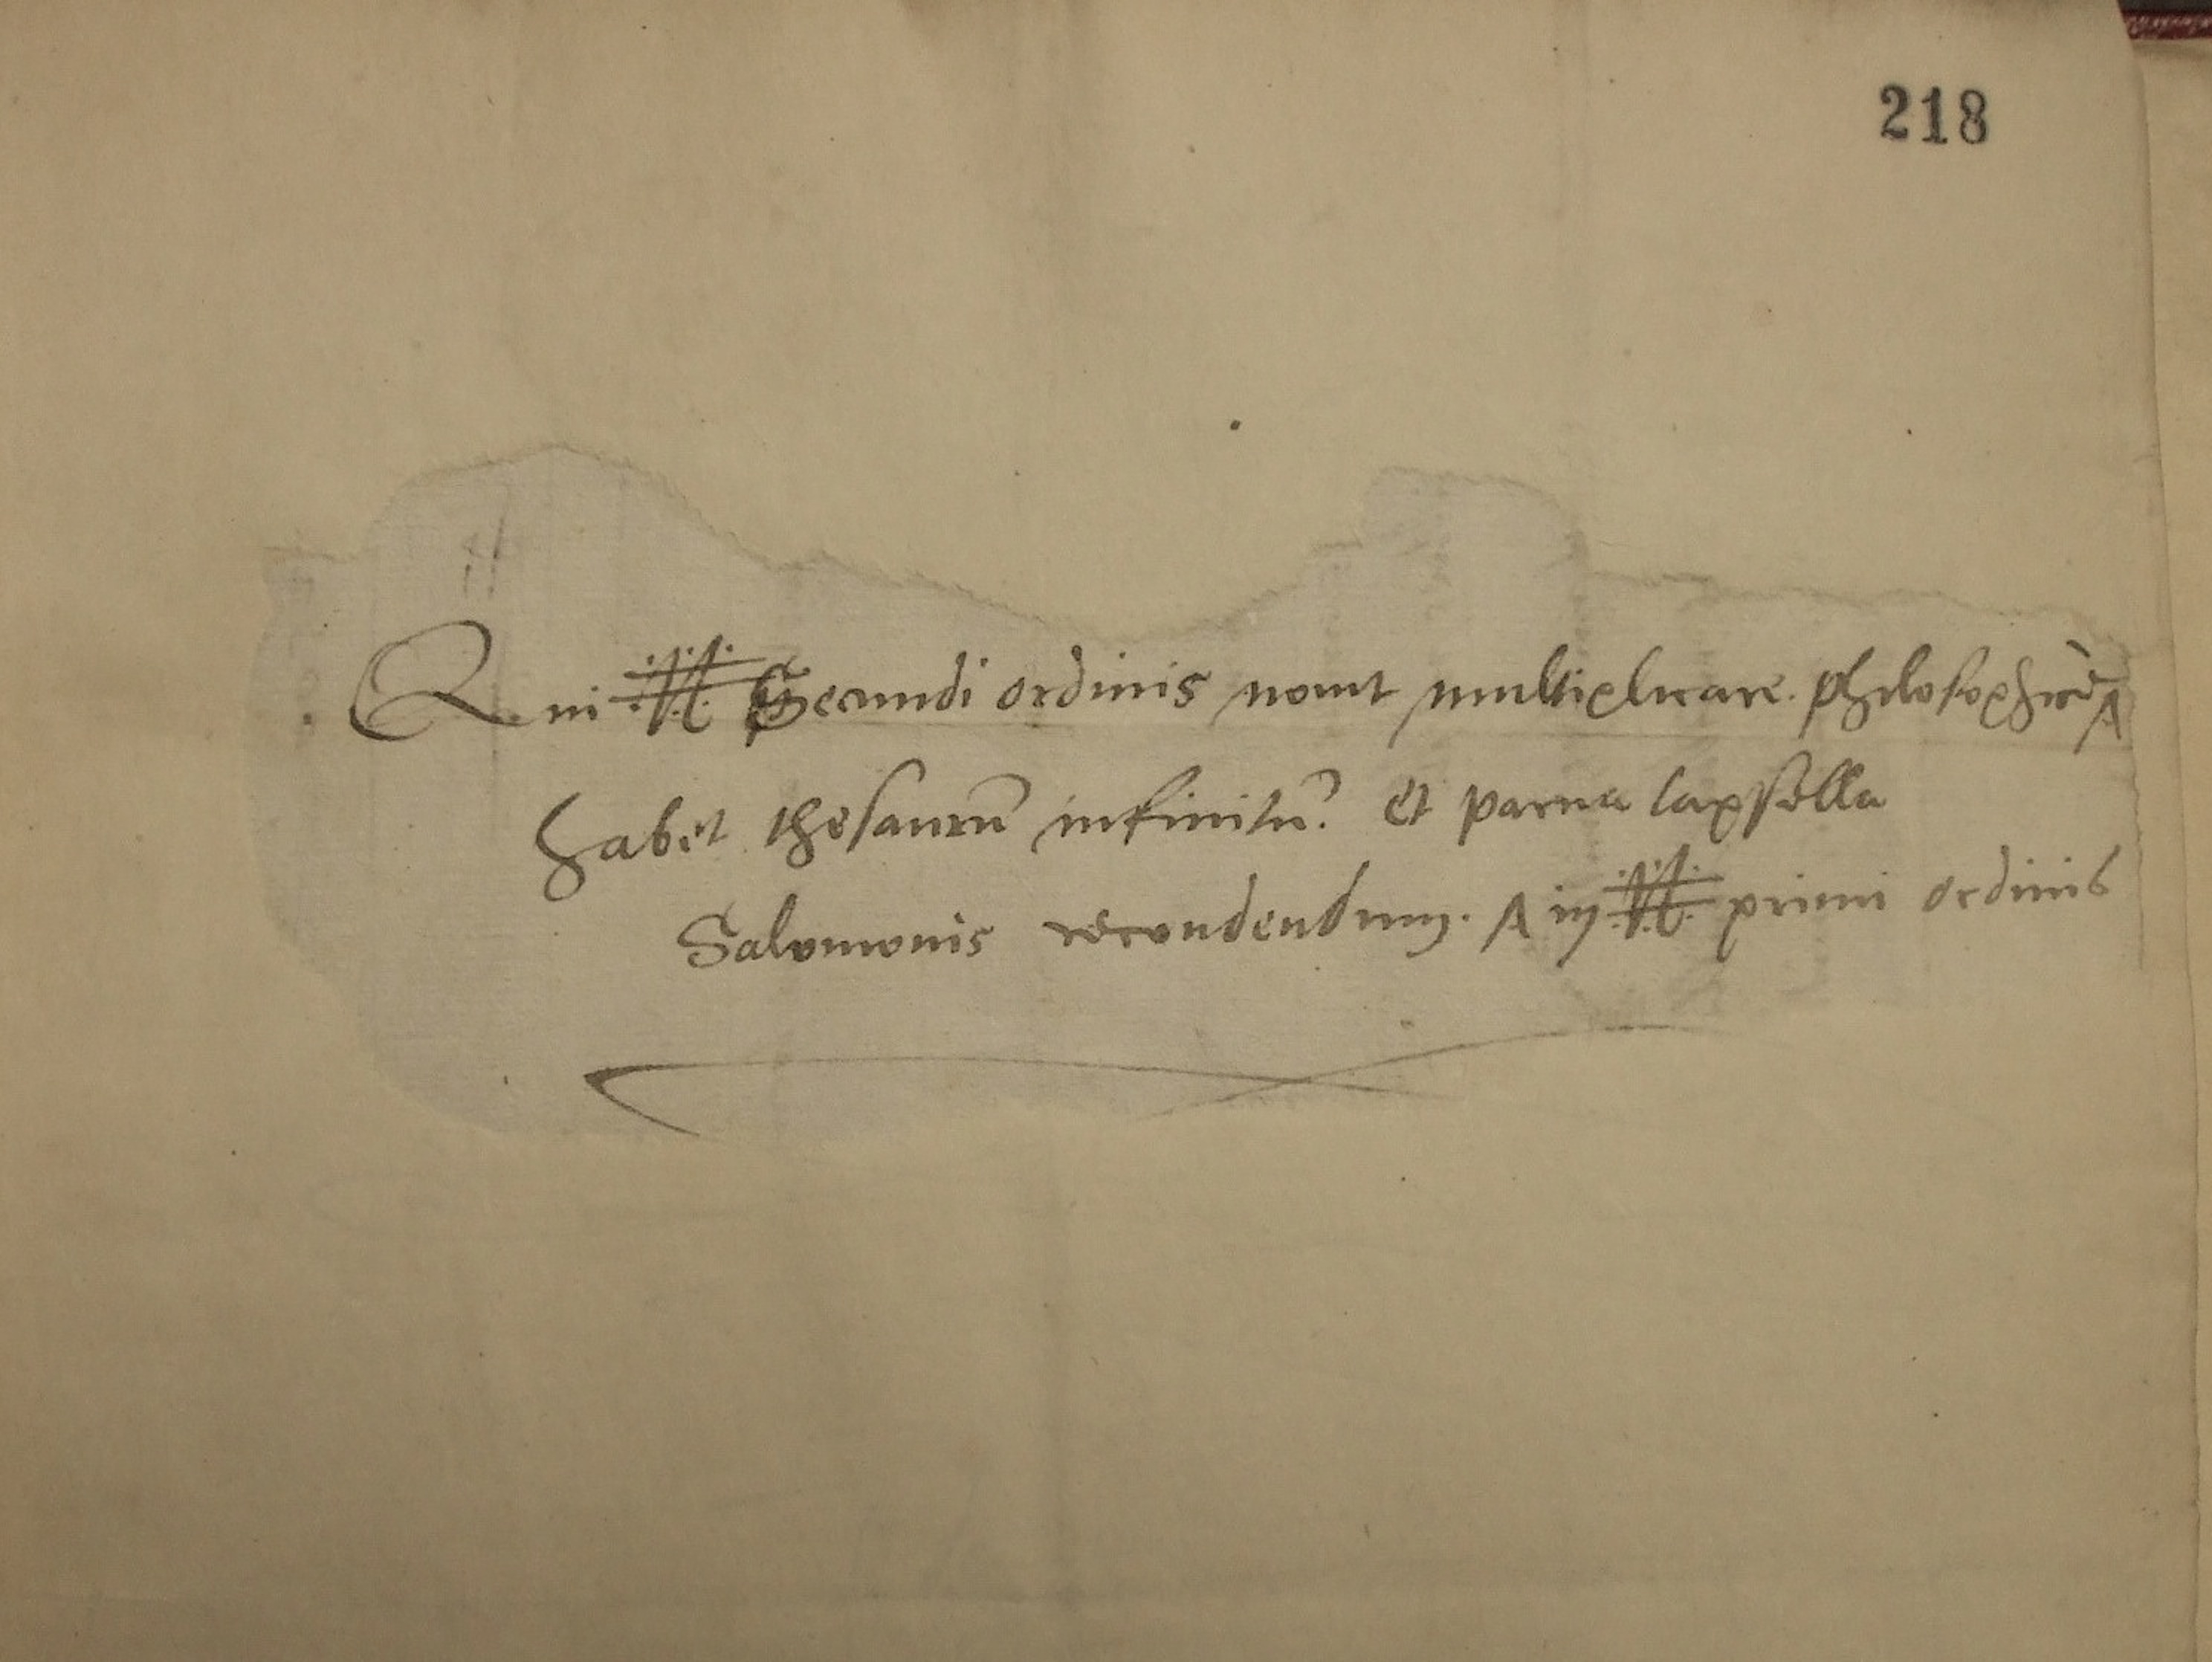 218
Qui Secundi ordinis nouit multiplicare. philosophicè
habet thesaurū infinitū. et parua capsella
Salomonis recondendum. in primi ordinis